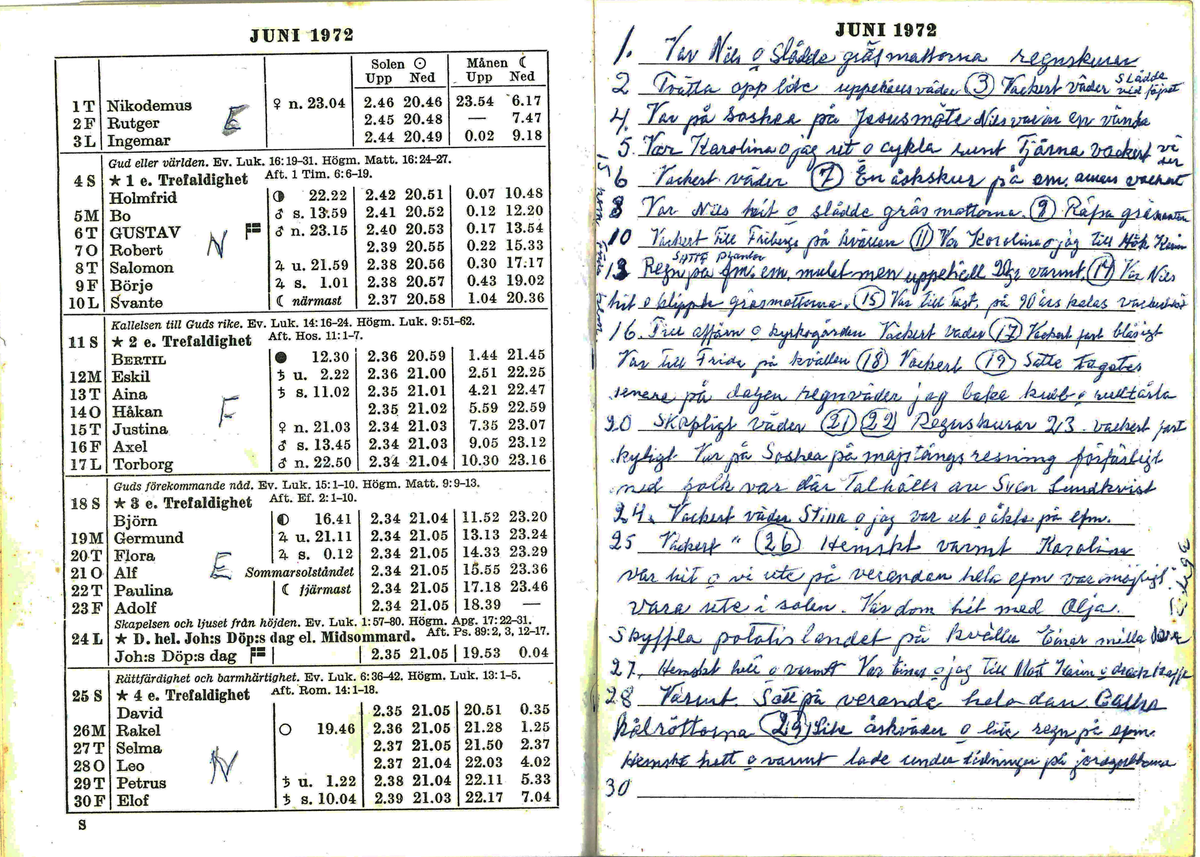 JUNI 1972
Solen ☉ Månen ☾
Upp Ned Upp Ned
1 T Nikodemus ♀ n. 23.04 2.46 20.46 23.54 6.17
2 F Rutger E 2.45 20.48 — 7.47
3 L Ingemar 2.44 20.49 0.02 9.18
Gud eller världen. Ev. Luk. 16:19-31. Högm. Matt. 16:24-27.
4 S ★ 1 e. Trefaldighet Aft. 1 Tim. 6:6-19.
Holmfrid ◑ 22.22 2.42 20.51 0.07 10.48
5 M Bo ♂ s. 13.59 2.41 20.52 0.12 12.20
6 T GUSTAV N ♂ n. 23.15 2.40 20.53 0.17 13.54
7 O Robert 2.39 20.55 0.22 15.33
8 T Salomon ♃ u. 21.59 2.38 20.56 0.30 17.17
9 F Börje ♃ s. 1.01 2.38 20.57 0.43 19.02
10 L Svante ☾ närmast 2.37 20.58 1.04 20.36
Kallelsen till Guds rike. Ev. Luk. 14:16-24. Högm. Luk. 9:51-62.
11 S ★ 2 e. Trefaldighet Aft. Hos. 11:1-7.
BERTIL ● 12.30 2.36 20.59 1.44 21.45
12 M Eskil ♄ u. 2.22 2.36 21.00 2.51 22.25
13 T Aina ♄ s. 11.02 2.35 21.01 4.21 22.47
14 O Håkan F 2.35 21.02 5.59 22.59
15 T Justina ♀ n. 21.03 2.34 21.03 7.35 23.07
16 F Axel ♂ s. 13.45 2.34 21.03 9.05 23.12
17 L Torborg ♂ n. 22.50 2.34 21.04 10.30 23.16
Guds förekommande nåd. Ev. Luk. 15:1-10. Högm. Matt. 9:9-13.
18 S ★ 3 e. Trefaldighet Aft. Ef. 2:1-10.
Björn ◐ 16.41 2.34 21.04 11.52 23.20
19 M Germund ♃ u. 21.11 2.34 21.05 13.13 23.24
20 T Flora ♃ s. 0.12 2.34 21.05 14.33 23.29
21 O Alf E Sommarsolståndet 2.34 21.05 15.55 23.36
22 T Paulina ☾ fjärmast 2.34 21.05 17.18 23.46
23 F Adolf 2.34 21.05 18.39 —
Skapelsen och ljuset från höjden. Ev. Luk. 1:57-80. Högm. Apg. 17:22-31.
24 L ★ D. hel. Joh:s Döp:s dag el. Midsommard. Aft. Ps. 89:2, 3, 12-17.
Joh:s Döp:s dag 2.35 21.05 19.53 0.04
Rättfärdighet och barmhärtighet. Ev. Luk. 6:36-42. Högm. Luk. 13:1-5.
25 S ★ 4 e. Trefaldighet Aft. Rom. 14:1-18.
David 2.35 21.05 20.51 0.35
26 M Rakel ○ 19.46 2.36 21.05 21.28 1.25
27 T Selma N 2.37 21.05 21.50 2.37
28 O Leo 2.37 21.04 22.03 4.02
29 T Petrus ♄ u. 1.22 2.38 21.04 22.11 5.33
30 F Elof ♄ s. 10.04 2.39 21.03 22.17 7.04
8
JUNI 1972
1. Var Nils o slådde gräsmattorna regnskurar
2 Tvätta opp lite uppehåusväder (3) Vackert väder slådde vid
4. Var på Soshea på Jesusmöte Nils var in en vända
5. Var Karolina o jag ut o cykla runt Tjärna vackert vä der
6 Vackert väder (7) En åskskur på em. annars vackert
8 Var Nils hit o slådde gräsmattorna. (9) Räfsa
10 Vackert Till Fribergs på kvällen (11) Var Karolina o jag till Hök Karin
13 Regn på fm. em. mulet men uppehåll varmt (14) Var Nils
SATTE Plantor
hit o klippte gräsmattorna. (15) Var till på 90 års kalas
16. Till affärn o kyrkogården Vackert väder (17) Vackert fast blåsigt
Var till Frida på kvällen (18) Vackert (19) Satte Tagetes
senare på dagen regnväder jag baka o rulltårta
20 Skapligt väder (21) (22) Regnskurar 23. vackert fast
kyligt Var på Soshea på majstångs resning förfärligt
med folk var där Tal hölls av Sven Lundkvist
24. Vackert väder Stina o jag var ut o åkte på efm.
25 Vackert " (26) Hemskt varmt Karolina
var hit o vi ute på verandan hela efm var omöjligt
vara ute i solen. Var dom hit med Olja.
Skyffla potatislandet på kvälln Einar
27. Hemskt hett o varmt Var Einar o jag till Karin o drack kaffe
28 Varmt. Satt på veranda hela dan
kålrötterna (29) Lite åskväder o lite regn på efm.
Hemskt hett o varmt lade under tidningar på
30